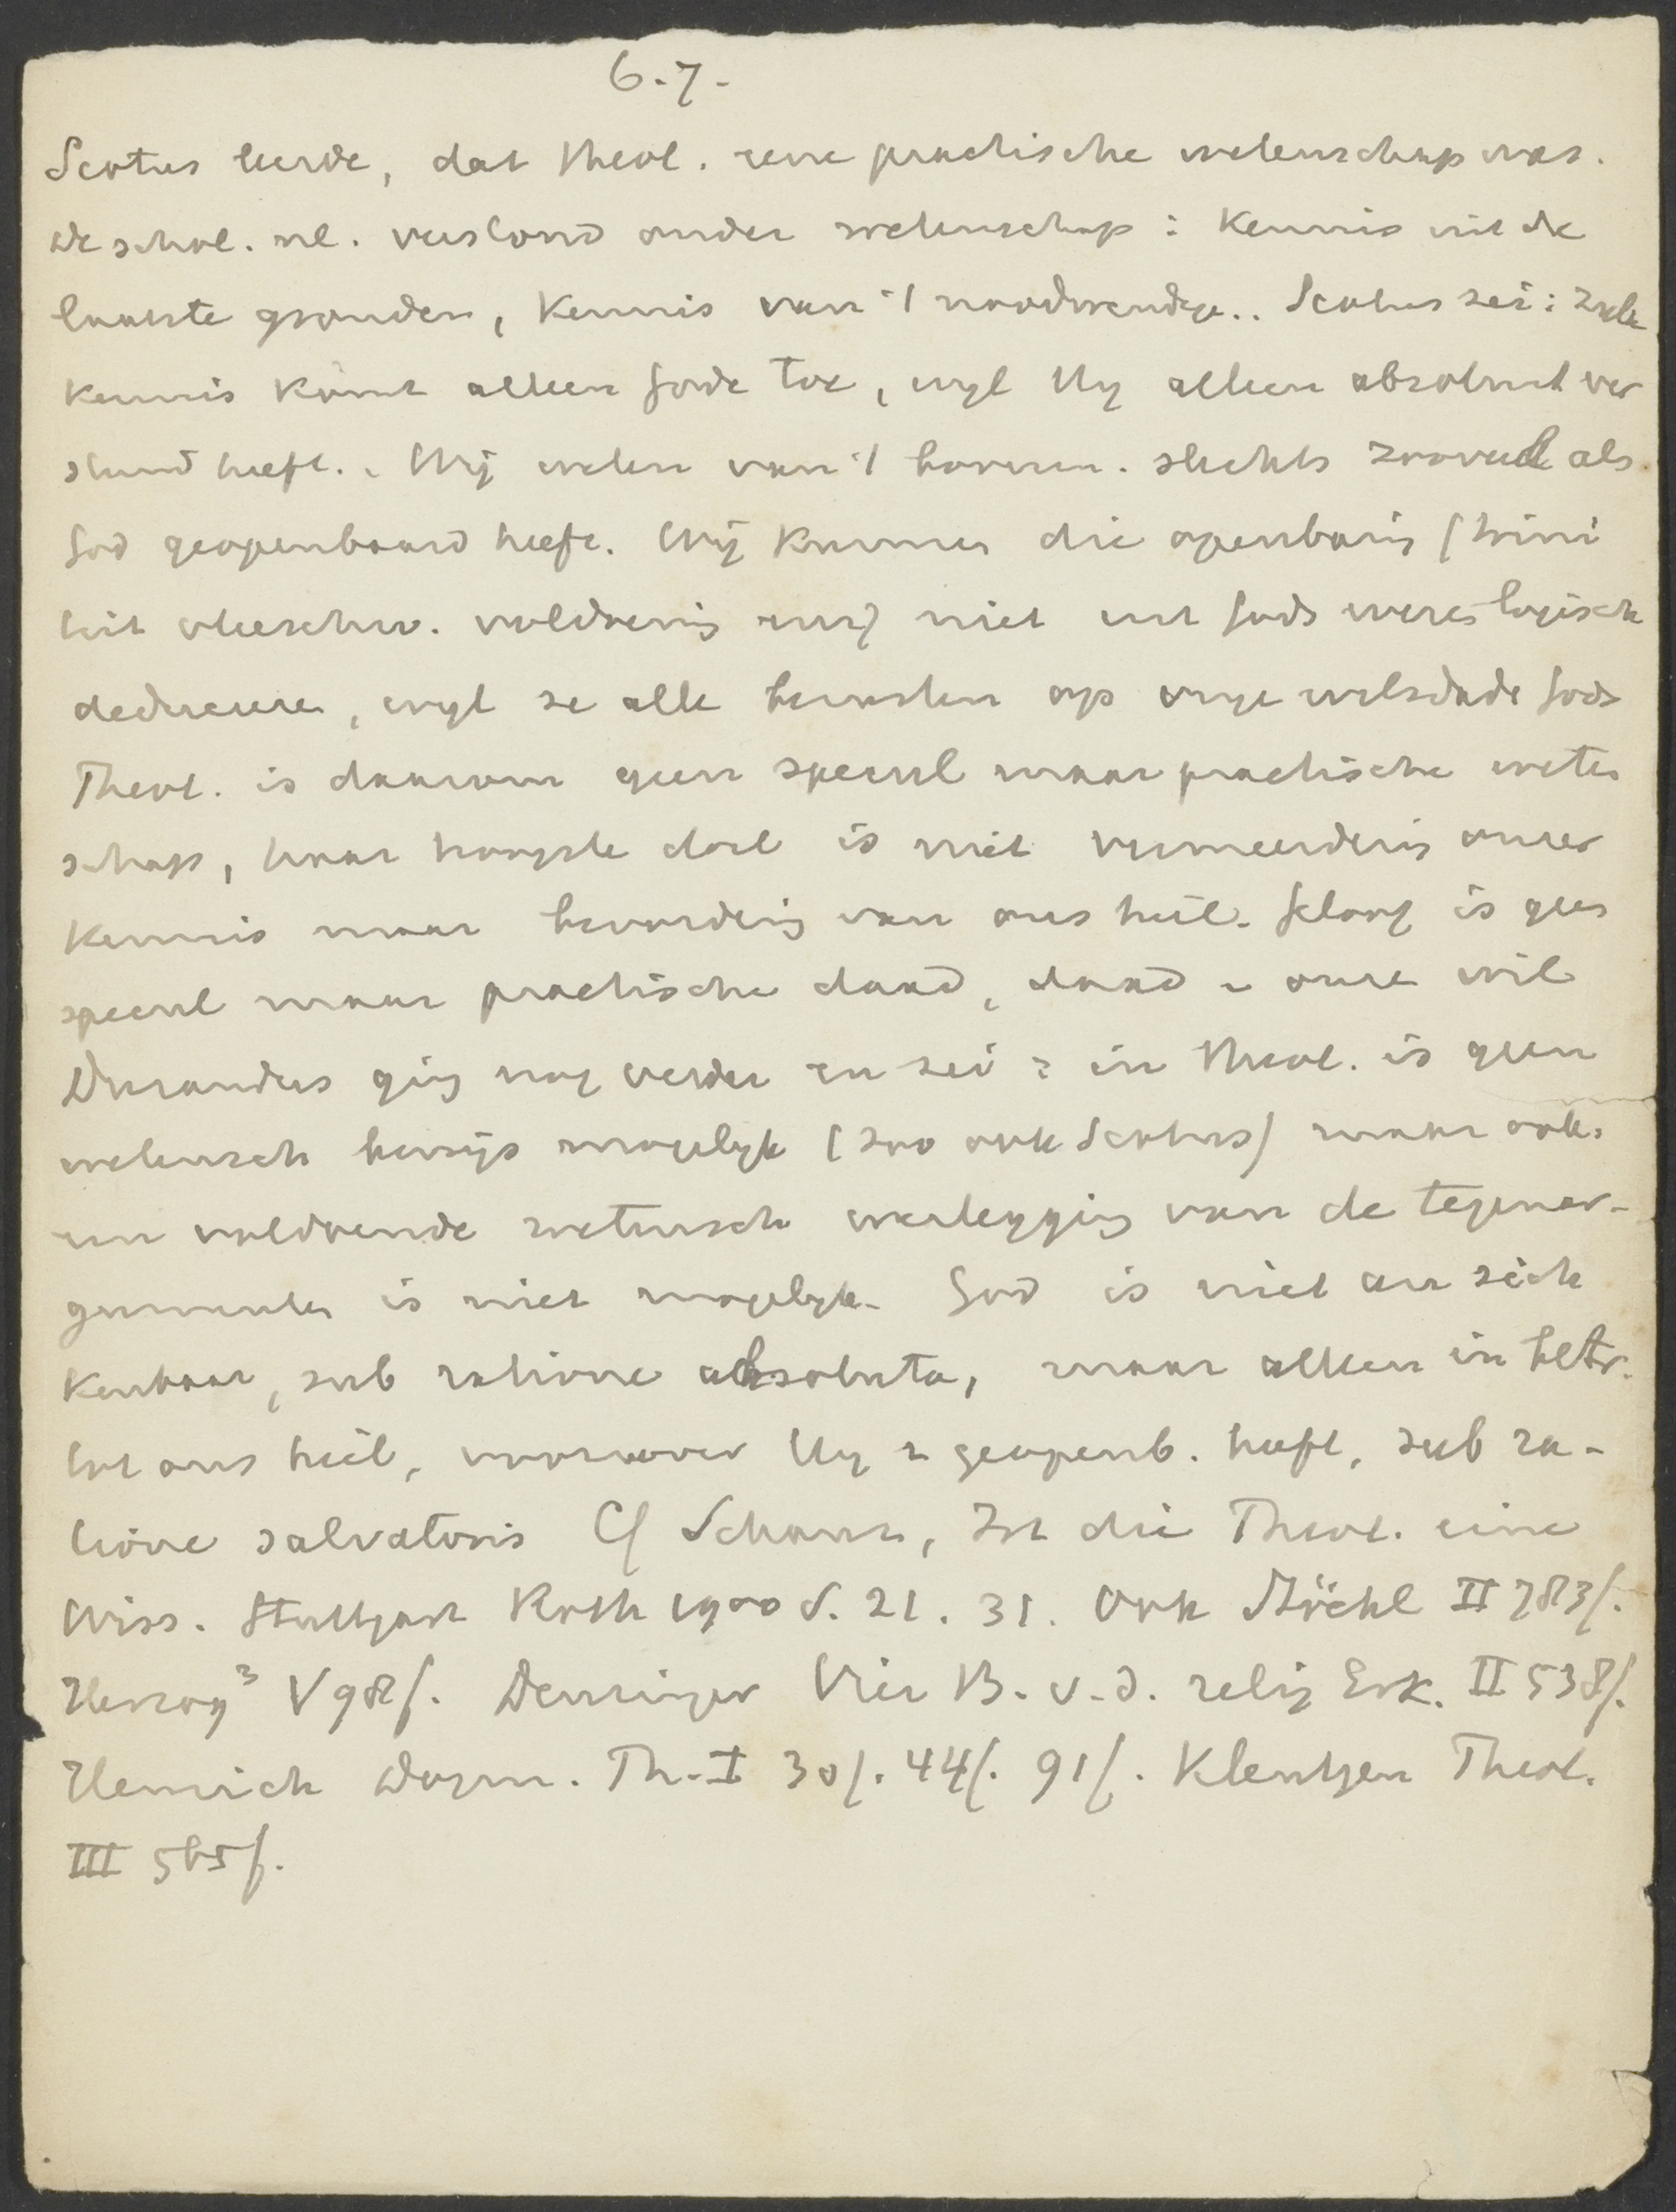 6.7.
Scotus leerde, dat theol. eene practische wetenschap was.
De schol. nl. verstond onder wetenschap : kennis uit de
laatste gronden, kennis van 't noodwendige.. Scotus zei: zulke
kennis komt alleen Gode toe, wyl Hy alleen absoluut ver
stand heeft. . Wij weten van 't bovenn. slechts zooveel als
God geopenbaard heeft. Wij kunnen die openbaring (trini
teit vleeschw. voldoening enz) niet uit Gods wezen logisch
deduceren, wyl ze alle berusten op vrye wilsdade Gods
Theol. is daarom geen specul maar practische weten
schap, haar hoogste doel is niet vermeerdering onzer
kennis maar bevordering van ons heil. Geloof is geen
specul maar practische daad, daad v onze wil
Durandus ging nog verder en zei : in theol. is geen
wetensch bewijs mogelyk (zoo ook Scotus) maar ook
een voldoende wetensch weerlegging van de tegenar-
gumenten is niet mogelyk. God is niet an sich
kenbaar, sub ratione absoluta, maar alleen in betr.
tot ons heil, voorzoover Hy z geopenb. heeft, sub ra-
tione salvatoris Cf Schanz, Ist die Theol. eine
Wiss. Stuttgart Roth 1900 S. 21. 31. Ook Stöckl II 783f.
Herzog³ V 98f. Denzinger Vier B. v. d. relig Erk. II 538f.
Heinrich Dogm. Th. I 30f. 44f. 91f. Kleutgen Theol.
III 565f.